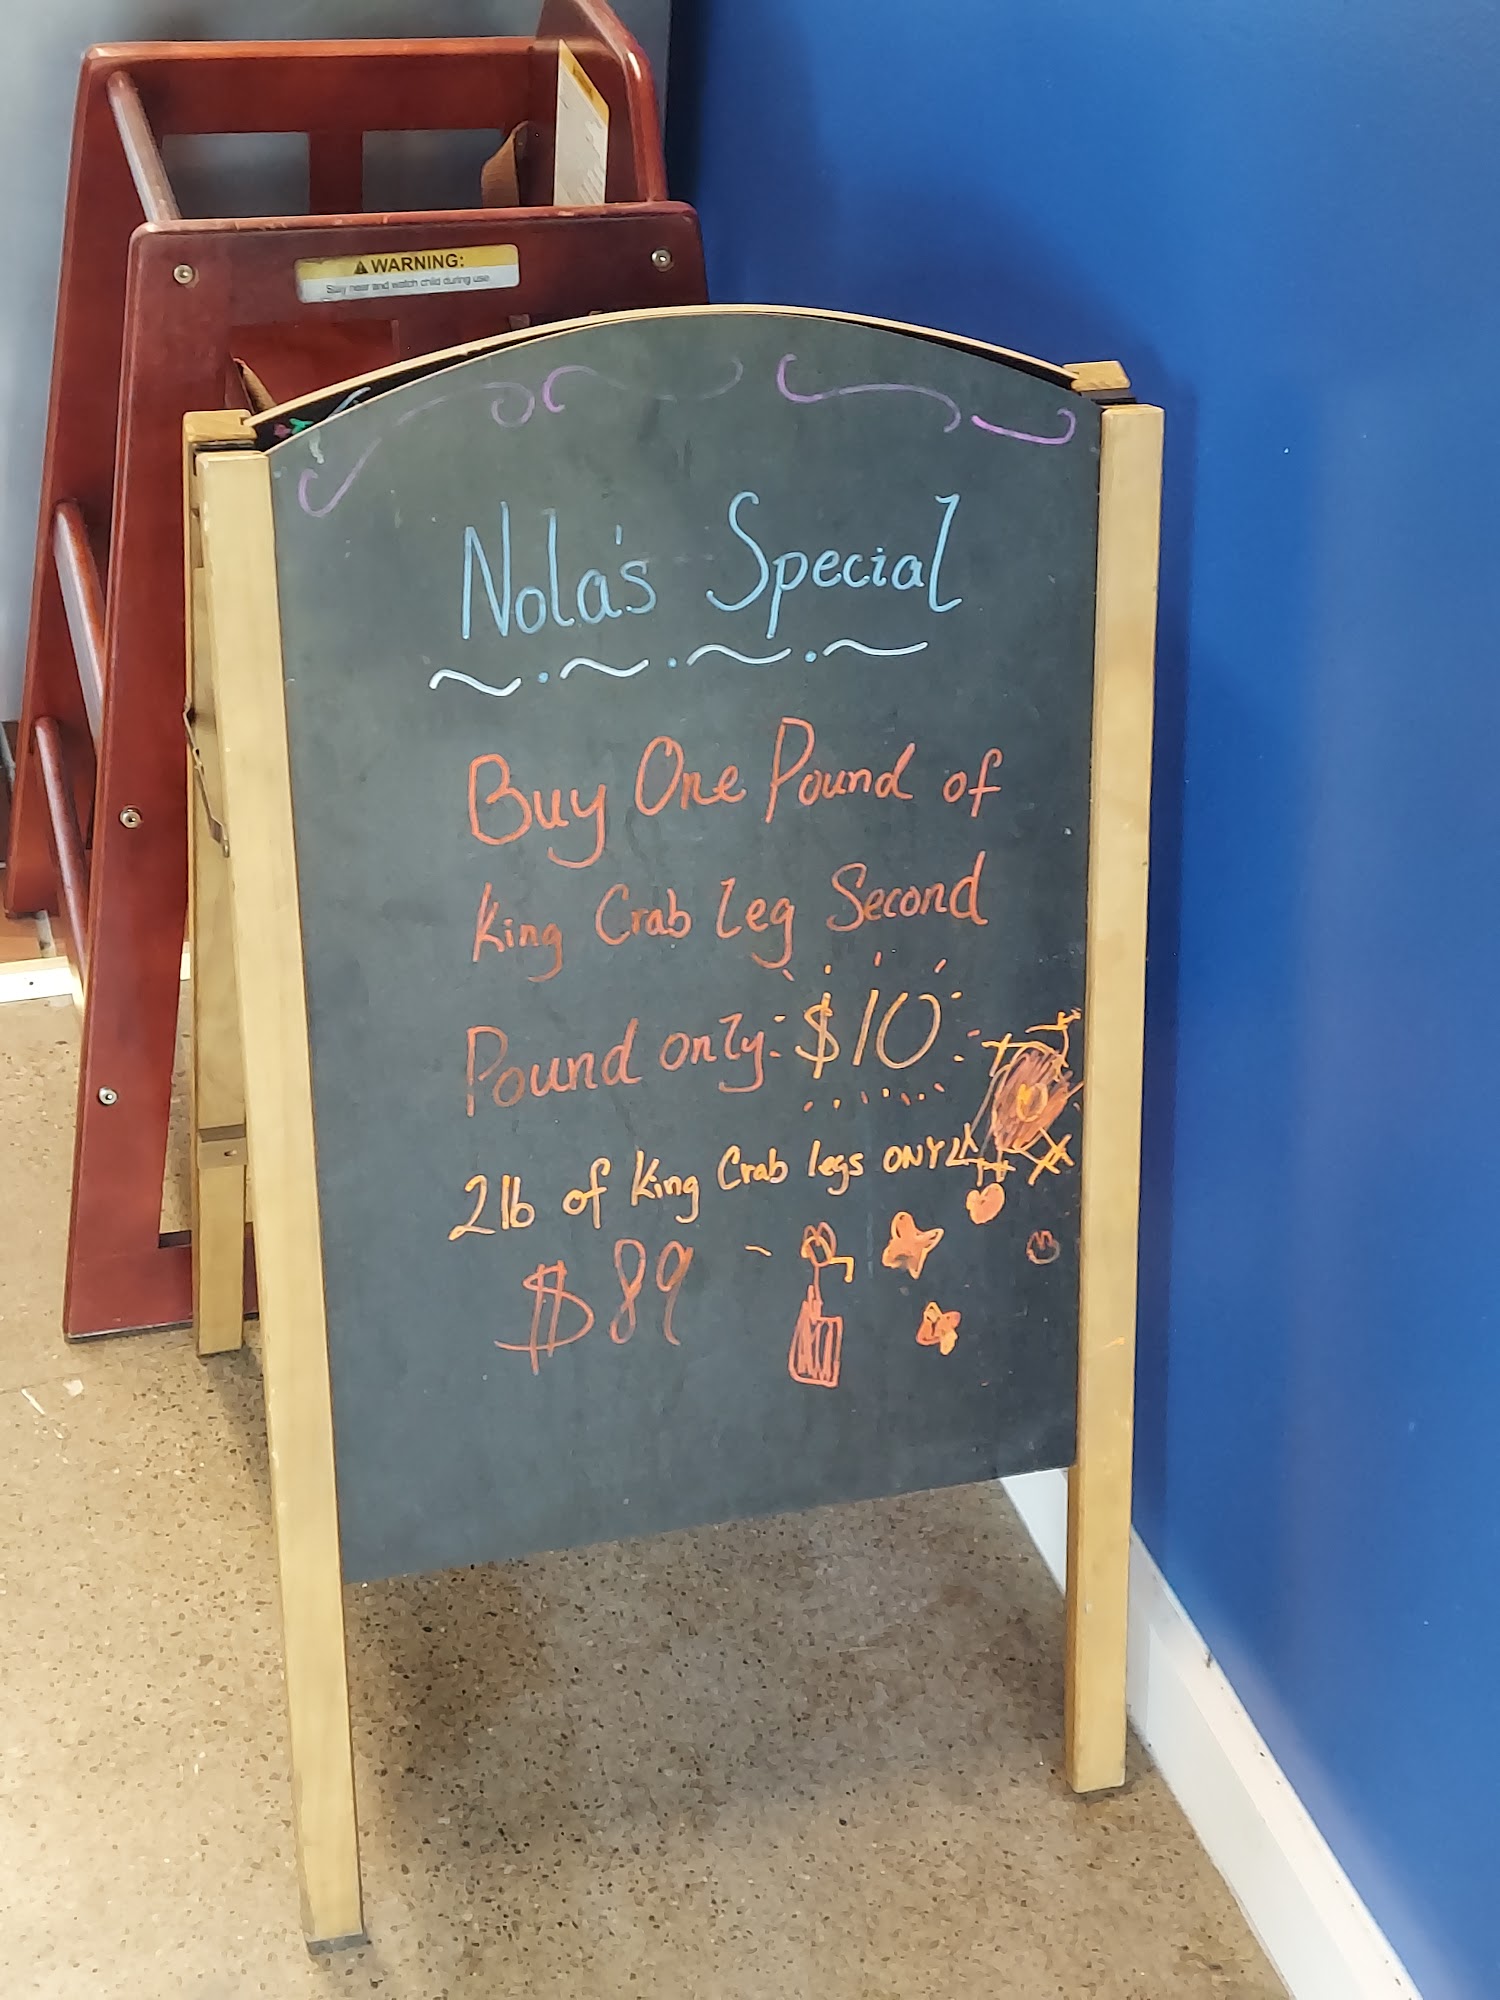 WARNING:
Stay near and watch child during use
Nola's Special
Buy One Pound of
King Crab Leg Second
Pound only: $10
2lb of King Crab legs ONYL
$89